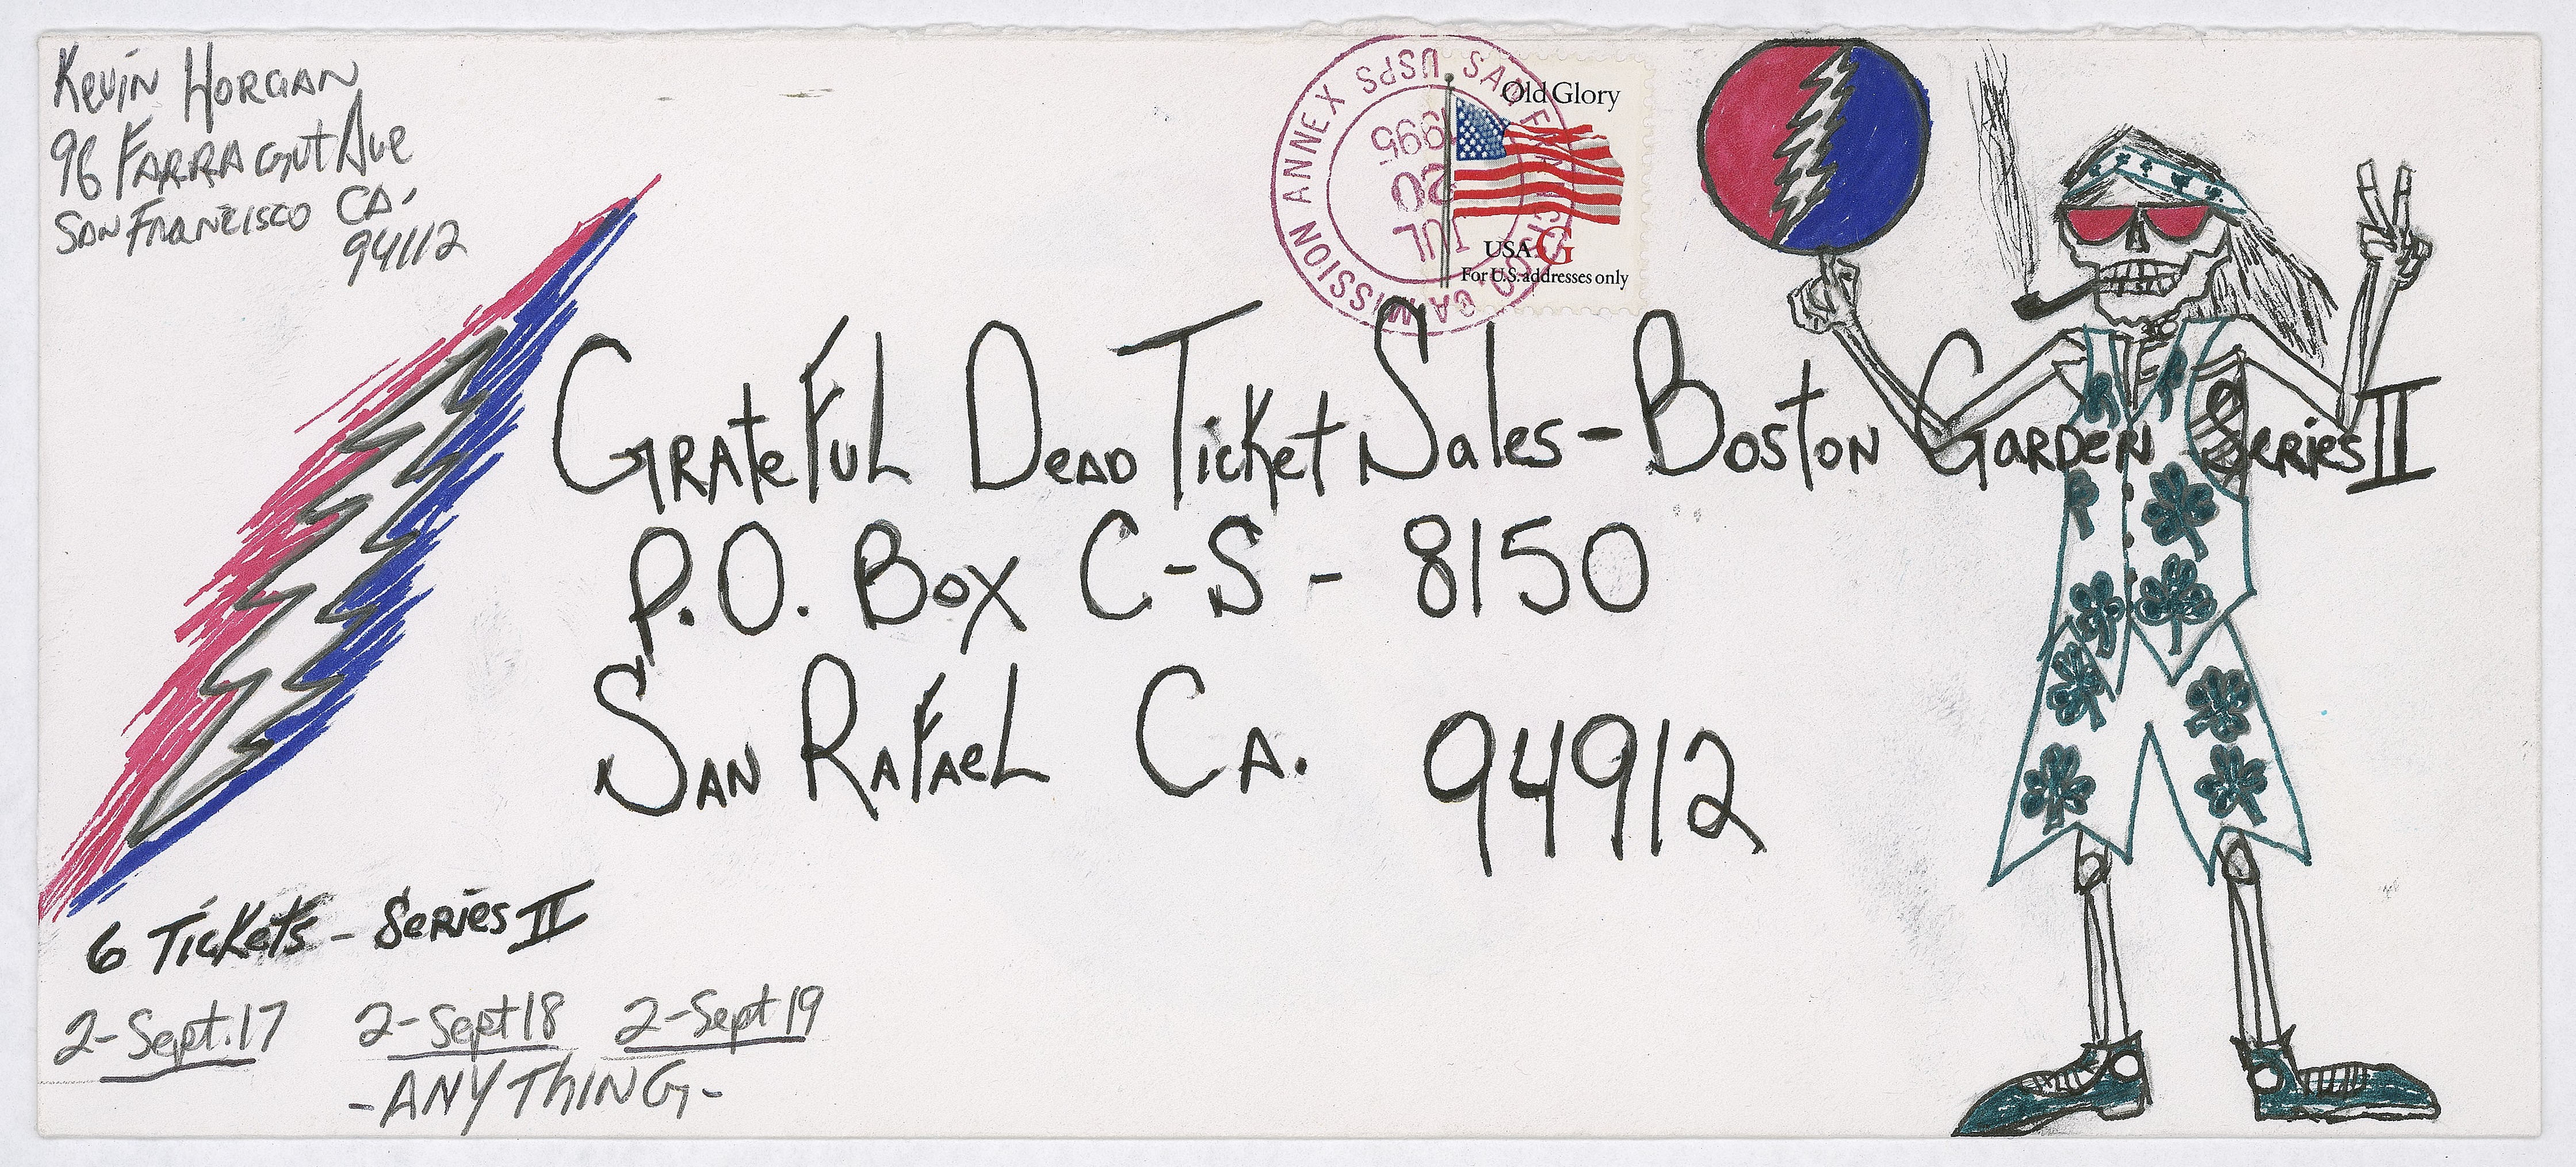 Kevin Horgan
96 Farragut Ave
San Francisco CA.
94112
USPS SAN FRANCISCO, CA MISSION ANNEX
JUL
20
1995
Old Glory
USA G
For U.S. addresses only
Grateful Dead Ticket Sales - Boston Garden Series II
P.O. Box C-S - 8150
San Rafael Ca. 94912
6 Tickets - Series II
2-Sept.17 2-Sept 18 2-Sept 19
-ANYTHING-